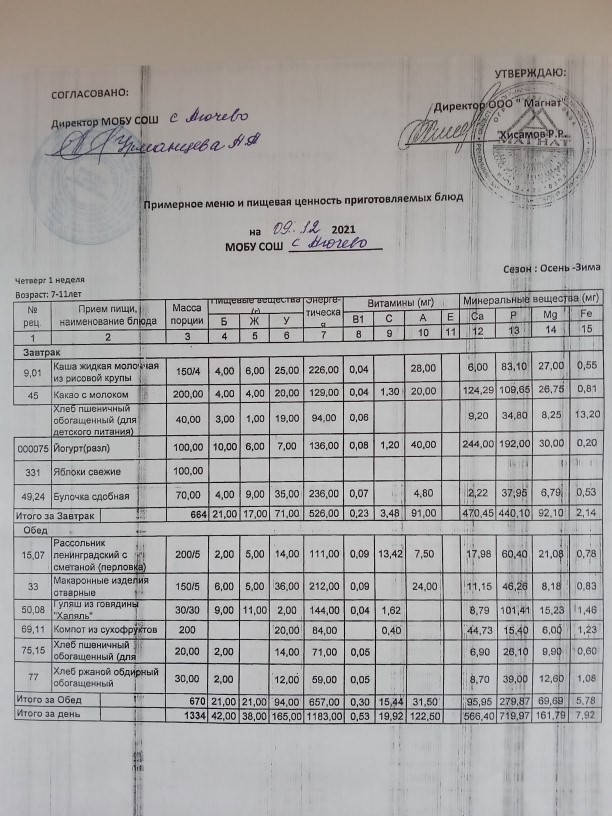 СОГЛАСОВАНО:
УТВЕРЖДАЮ:
Директор МОБУ СОШ с Мючево
Директор ООО " Магнат"
Урманцева Н.А
Хисамов Р.Р.
МАГНАТ
Примерное меню и пищевая ценность приготовляемых блюд
на 09.12 2021
МОБУ СОШ с Мючево
Сезон : Осень -Зима
Четверг 1 неделя
Возраст: 7-11лет
№ рец. Прием пищи, наименование блюда Масса порции Пищевые вещества (г) Энерге-тическая Витамины (мг) Минеральные вещества (мг)
Б Ж У В1 С А Е Ca P Mg Fe
1 2 3 4 5 6 7 8 9 10 11 12 13 14 15
Завтрак
9,01 Каша жидкая молочная из рисовой крупы 150/4 4,00 6,00 25,00 226,00 0,04 28,00 6,00 83,10 27,00 0,55
45 Какао с молоком 200,00 4,00 4,00 20,00 129,00 0,04 1,30 20,00 124,29 109,65 26,75 0,81
Хлеб пшеничный обогащенный (для детского питания) 40,00 3,00 1,00 19,00 94,00 0,06 9,20 34,80 8,25 13,20
000075 Йогурт(разл) 100,00 10,00 6,00 7,00 136,00 0,08 1,20 40,00 244,00 192,00 30,00 0,20
331 Яблоки свежие 100,00
49,24 Булочка сдобная 70,00 4,00 9,00 35,00 236,00 0,07 4,80 2,22 37,95 6,79 0,53
Итого за Завтрак 664 21,00 17,00 71,00 526,00 0,23 3,48 91,00 470,45 440,10 92,10 2,14
Обед
15,07 Рассольник ленинградский с сметаной (перловка) 200/5 2,00 5,00 14,00 111,00 0,09 13,42 7,50 17,98 60,40 21,08 0,78
33 Макаронные изделия отварные 150/5 6,00 5,00 36,00 212,00 0,09 24,00 11,15 46,26 8,18 0,83
50,08 Гуляш из говядины "Халяль" 30/30 9,00 11,00 2,00 144,00 0,04 1,62 8,79 101,41 15,23 1,46
69,11 Компот из сухофруктов 200 20,00 84,00 0,40 44,73 15,40 6,00 1,23
75,15 Хлеб пшеничный обогащенный (для 20,00 2,00 14,00 71,00 0,05 6,90 26,10 9,90 0,60
77 Хлеб ржаной обдирный обогащенный 30,00 2,00 12,00 59,00 0,05 8,70 39,00 12,60 1,08
Итого за Обед 670 21,00 21,00 94,00 657,00 0,30 15,44 31,50 95,95 279,87 69,69 5,78
Итого за день 1334 42,00 38,00 165,00 1183,00 0,53 19,92 122,50 566,40 719,97 161,79 7,92